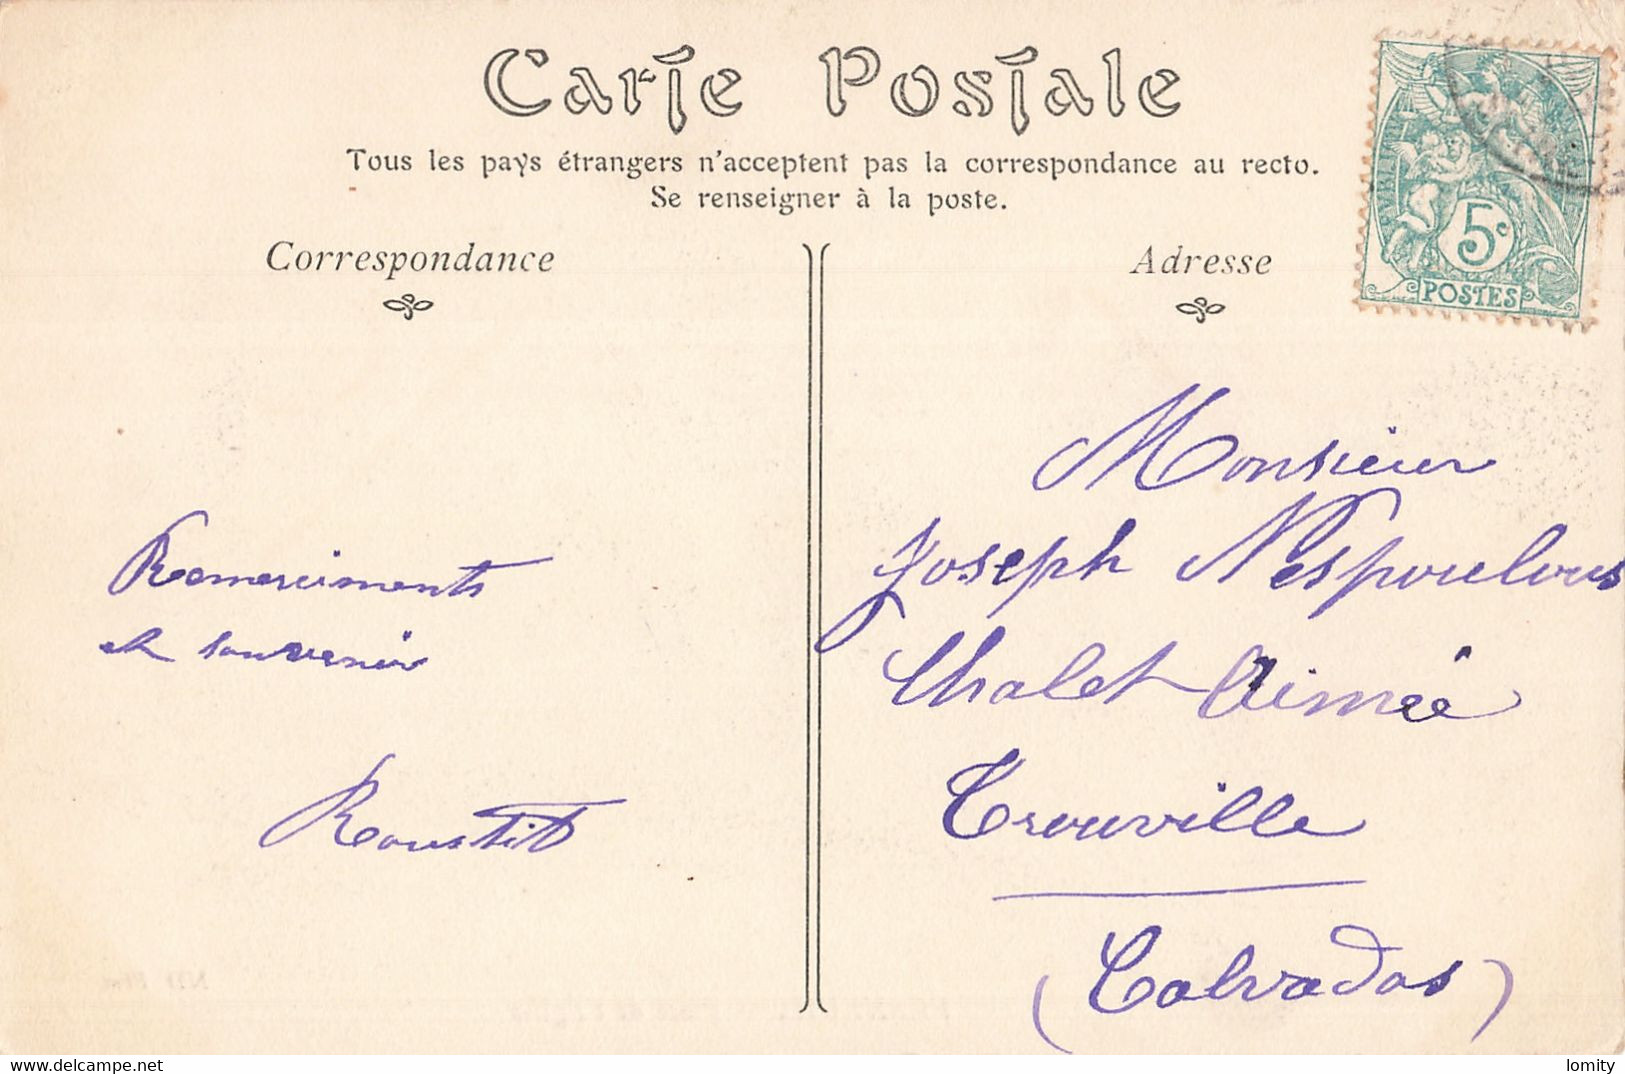 Carte Postale
Tous les pays étrangers n'acceptent pas la correspondance au recto.
Se renseigner à la poste.
Correspondance
Adresse
5c
POSTES
Remerciments
et souvenir
Roustit
Monsieur
Joseph Nespoulous
Chalet Aimée
Trouville
(Calvados)
delcampe.net
lomity